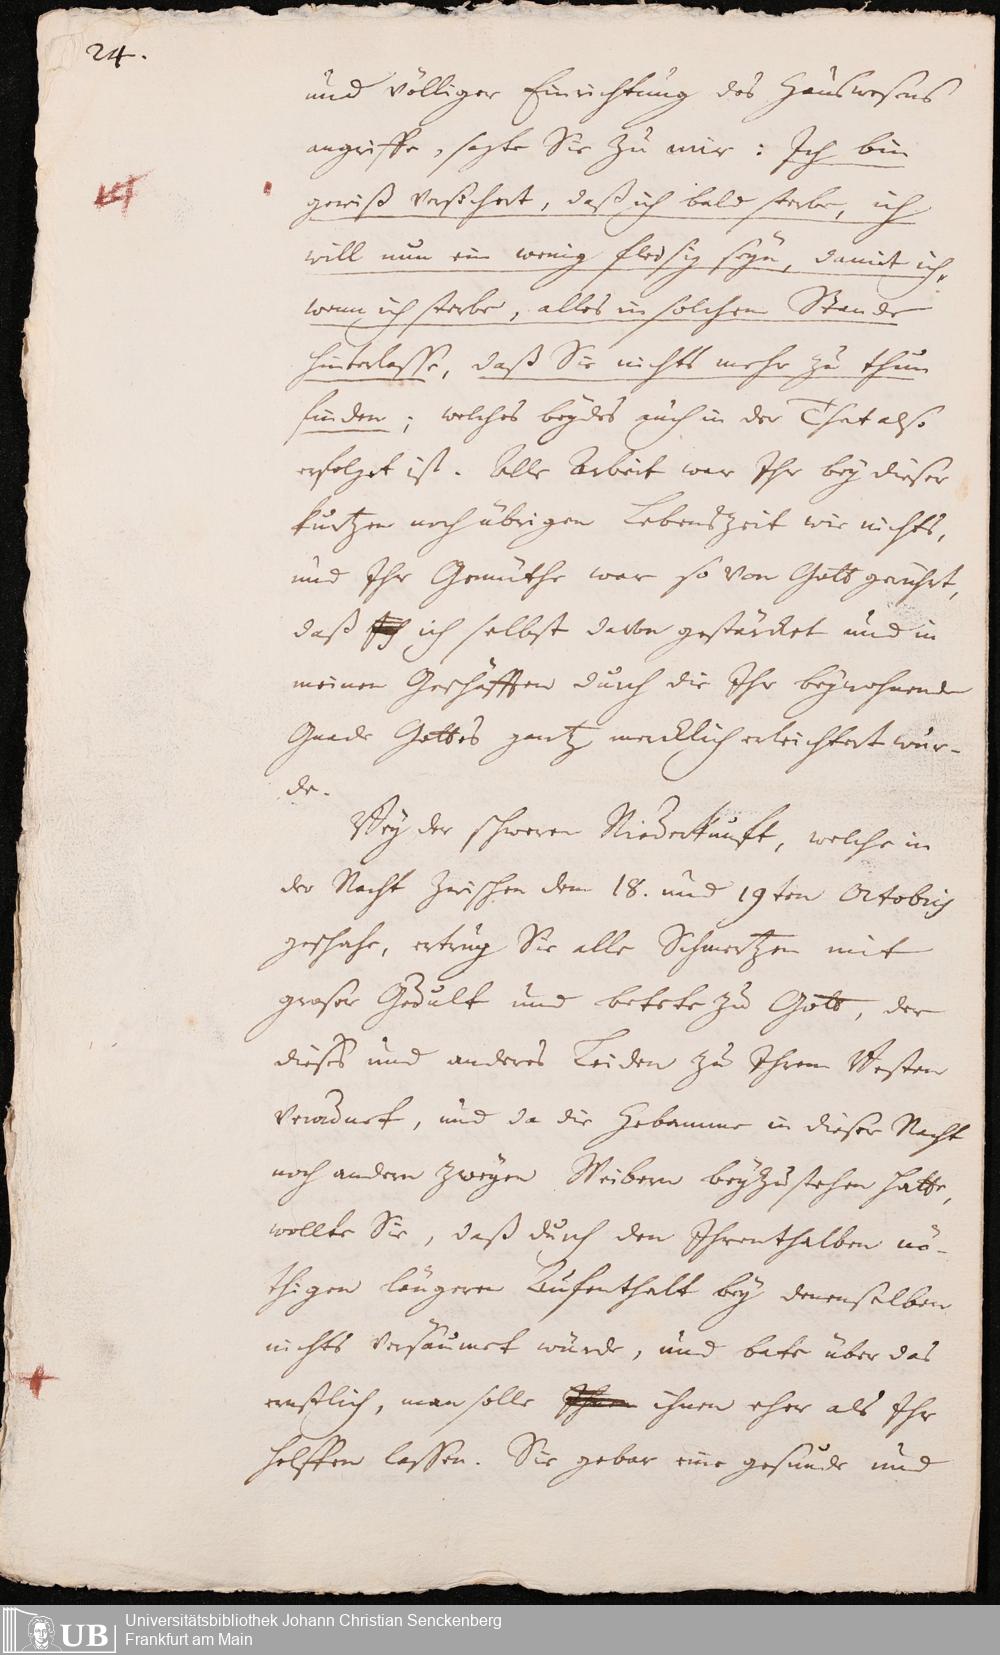 24.
und völliger Einrichtung des Hauswesens
angriffe, sagte Sie zu mir: Ich bin
gewiß versichert, daß ich bald sterbe, ich
will nun ein wenig fleisig seyn, damit ich,
wenn ich sterbe, alles in solchem Stande
hinterlasse, daß Sie nichts mehr zu thun
finden; welches beydes auch in der That also
erfolget ist. Alle Arbeit war Ihr bey dieser
kurtzen noch übrigen Lebenszeit wie nichts,
und Ihr Gemüthe war so von Gott gerührt,
daß ich selbst davon gestärcket und in
meinen Geschäfften durch die Ihr beywohnende
Gnade Gottes gantz mercklich erleichtert wur-
de.
Bey der schweren Niederkunft, welche in
der Nacht zwischen dem 18. und 19ten Octobris
geschahe, ertrug Sie alle Schmertzen mit
groser Gedult und betete zu Gott, der
dieses und anderes Leiden zu Ihrem Besten
verordnet, und da die Hebamme in dieser Nacht
noch andern zweyen Weibern beyzustehen hatte,
wollte Sie, daß durch den Ihrenthalben nö-
thigen längeren Aufenthalt bey denenselben
nichts versäumet würde, und bate über das
ernstlich, man solle ihnen eher als Ihr
helffen lassen. Sie gebar eine gesunde und
UB
Universitätsbibliothek Johann Christian Senckenberg
Frankfurt am Main